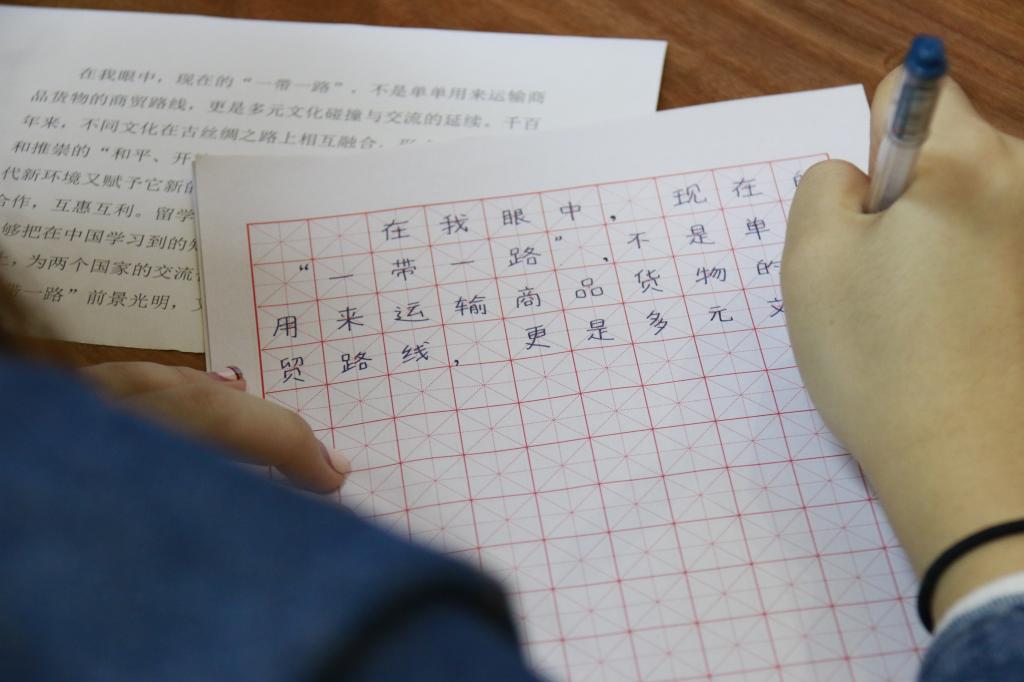 在我眼中，现在的“一带一路”，不是单单用来运输商
品货物的商贸路线，更是多元文化碰撞与交流的延续。千百
年来，不同文化在古丝绸之路上相互融合，
和推崇的“和平、开
代新环境又赋予它新的
合作，互惠互利。留学
够把在中国学习到的知
，为两个国家的交流
带一路”前景光明，
在我眼中，现在的
“一带一路”，不是单
用来运输商品货物的
贸路线，更是多元文